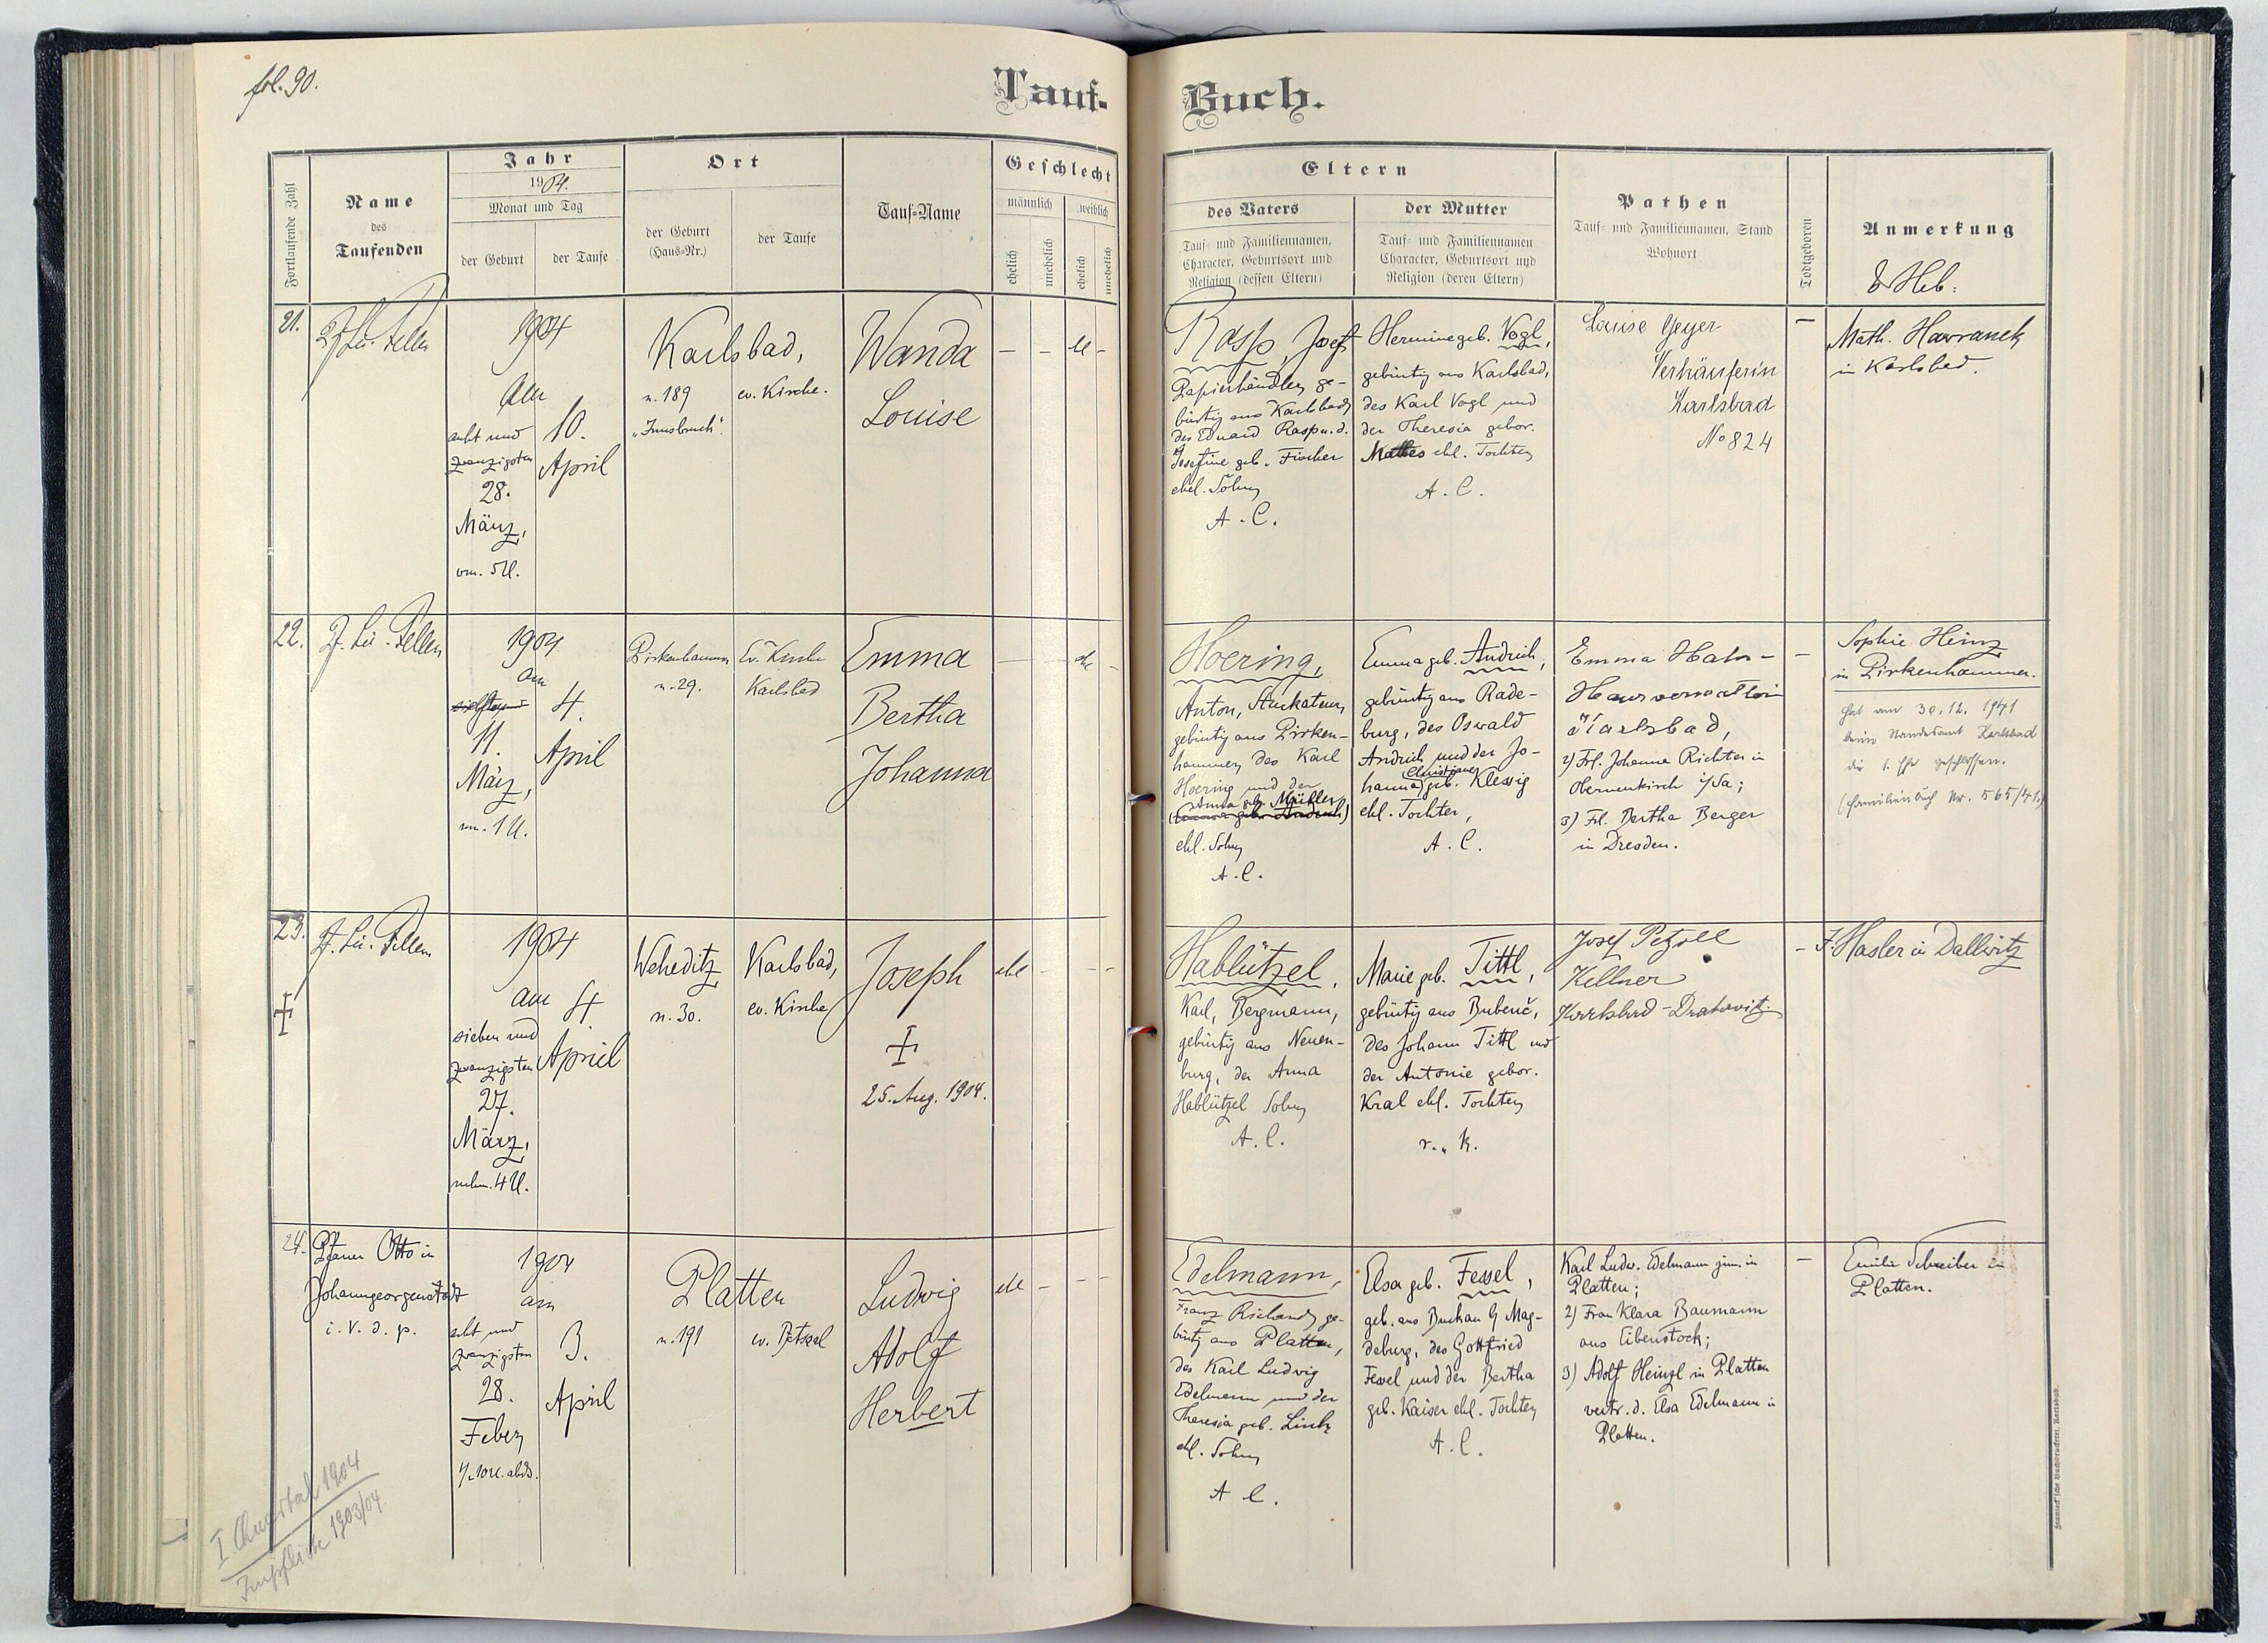 fol. 90.
Tauf-
Buch.
Fortlaufende Zahl
Name
des
Taufenden
Jahr
1904.
Monat und Tag
der Geburt
der Taufe
Ort
der Geburt
(Haus-Nr.)
der Taufe
Tauf-Name
Geschlecht
männlich
weiblich
ehelich
unehelich
ehelich
unehelich
Eltern
des Vaters
Tauf- und Familiennamen,
Character, Geburtsort und
Religion (dessen Eltern)
der Mutter
Tauf- und Familiennamen
Character, Geburtsort und
Religion (deren Eltern)
Pathen
Tauf- und Familiennamen, Stand
Wohnort
Todtgeboren
Anmerkung
& Heb:
21.
1904
Am
acht und
zwanzigsten
28.
März,
vm. 5 U.
10.
April
Karlsbad,
n. 189
"Innsbruck".
ev. Kirche.
Wanda
Louise
—
–
–
Rasp, Josef
Papierhändler, ge-
bürtig aus Karlsbad,
des Eduard Rasp u. d.
Josefine geb. Fischer
ehel. Sohn
A. C.
Hermine geb. Vogl,
gebürtig aus Karlsbad,
des Karl Vogl und
der Theresia gebor.
Mathes ehl. Tochter
A. C.
Louise Geyer
Verkäuferin
Karlsbad
No 824
—
Math. Hawranek
in Karlsbad.
22.
1904
am
11.
März,
4.
April
Pirkenhammer
n. 29.
Ev. Kirche
Karlsbad
Emma
Bertha
Johanna
Hoering,
Anton, Stukateur,
gebürtig aus Pirken-
hammer, des Karl
Hoering und der
Anna geb. Müller
ehl. Sohn
A. C.
Emma geb. Andrich,
gebürtig aus Rade-
burg, des Oswald
Andrich und der Jo-
hanna Christiane geb. Klessig
ehl. Tochter,
A. C.
Emma Hahn –
Hausverwalterin
Karlsbad,
2) Frl. Johanna Richter in
Obernenkirch i/Sa;
3) Frl. Bertha Berger
in Dresden.
–
Sophie Heinz
in Pirkenhammer.
Hat am 30.12.1941
beim Standesamt Karlsbad
die 1. Ehe geschlossen.
(Familienbuch Nr. 565/41.)
23.
1904
am
sieben und
zwanzigsten
27.
März,
nchm. 4 U.
4
April
Weheditz
n. 30.
Karlsbad,
ev. Kirche
Joseph
25. Aug. 1904.
ehl
–
Hablützel,
Karl, Bergmann,
gebürtig aus Neuen-
burg, der Anna
Hablützel Sohn
A. C.
Marie geb. Tittl,
gebürtig aus Bubenč,
des Johann Tittl und
der Antonie gebor.
Kral ehl. Tochter
r. k.
Josef Petzoll
Kellner
Karlsbad – Drahowitz.
–
F. Hasler in Dallwitz
24.
Pfarrer Otto in
Johanngeorgenstadt
i. V. d. p.
1904
am
acht und
zwanzigsten
28.
Feber
1/2 10 U. abds.
3.
April
Platten
n. 191
ev. Betsaal
Ludwig
Adolf
Herbert
ehl
–
Edelmann,
Franz Richard, ge-
bürtig aus Platten,
des Karl Ludwig
Edelmann und der
Theresia geb. Link
ehl. Sohn
A. C.
Elsa geb. Fessel,
geb. aus Buckau b/ Mag-
deburg, des Gottfried
Fessel und der Bertha
geb. Kaiser ehl. Tochter
A. C.
Karl Ludw. Edelmann jun. in
Platten;
2) Frau Klara Baumann
aus Eibenstock;
3) Adolf Heinzl in Platten
vertr. d. Elsa Edelmann in
Platten.
—
Emilie Schreiber in
Platten.
I. Quartal 1904
Impfliste 1903/04